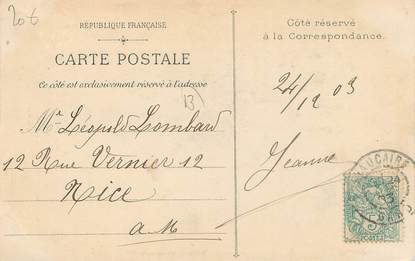 20 6
RÉPUBLIQUE FRANÇAISE
CARTE POSTALE
Ce côté est exclusivement réservé à l'adresse
13
Mr Léopold Lombard
12 Rue Vernier 12
Nice
A M
Côté réservé
à la Correspondance.
24/12 03
Jeanne
BEAUCAIRE
5